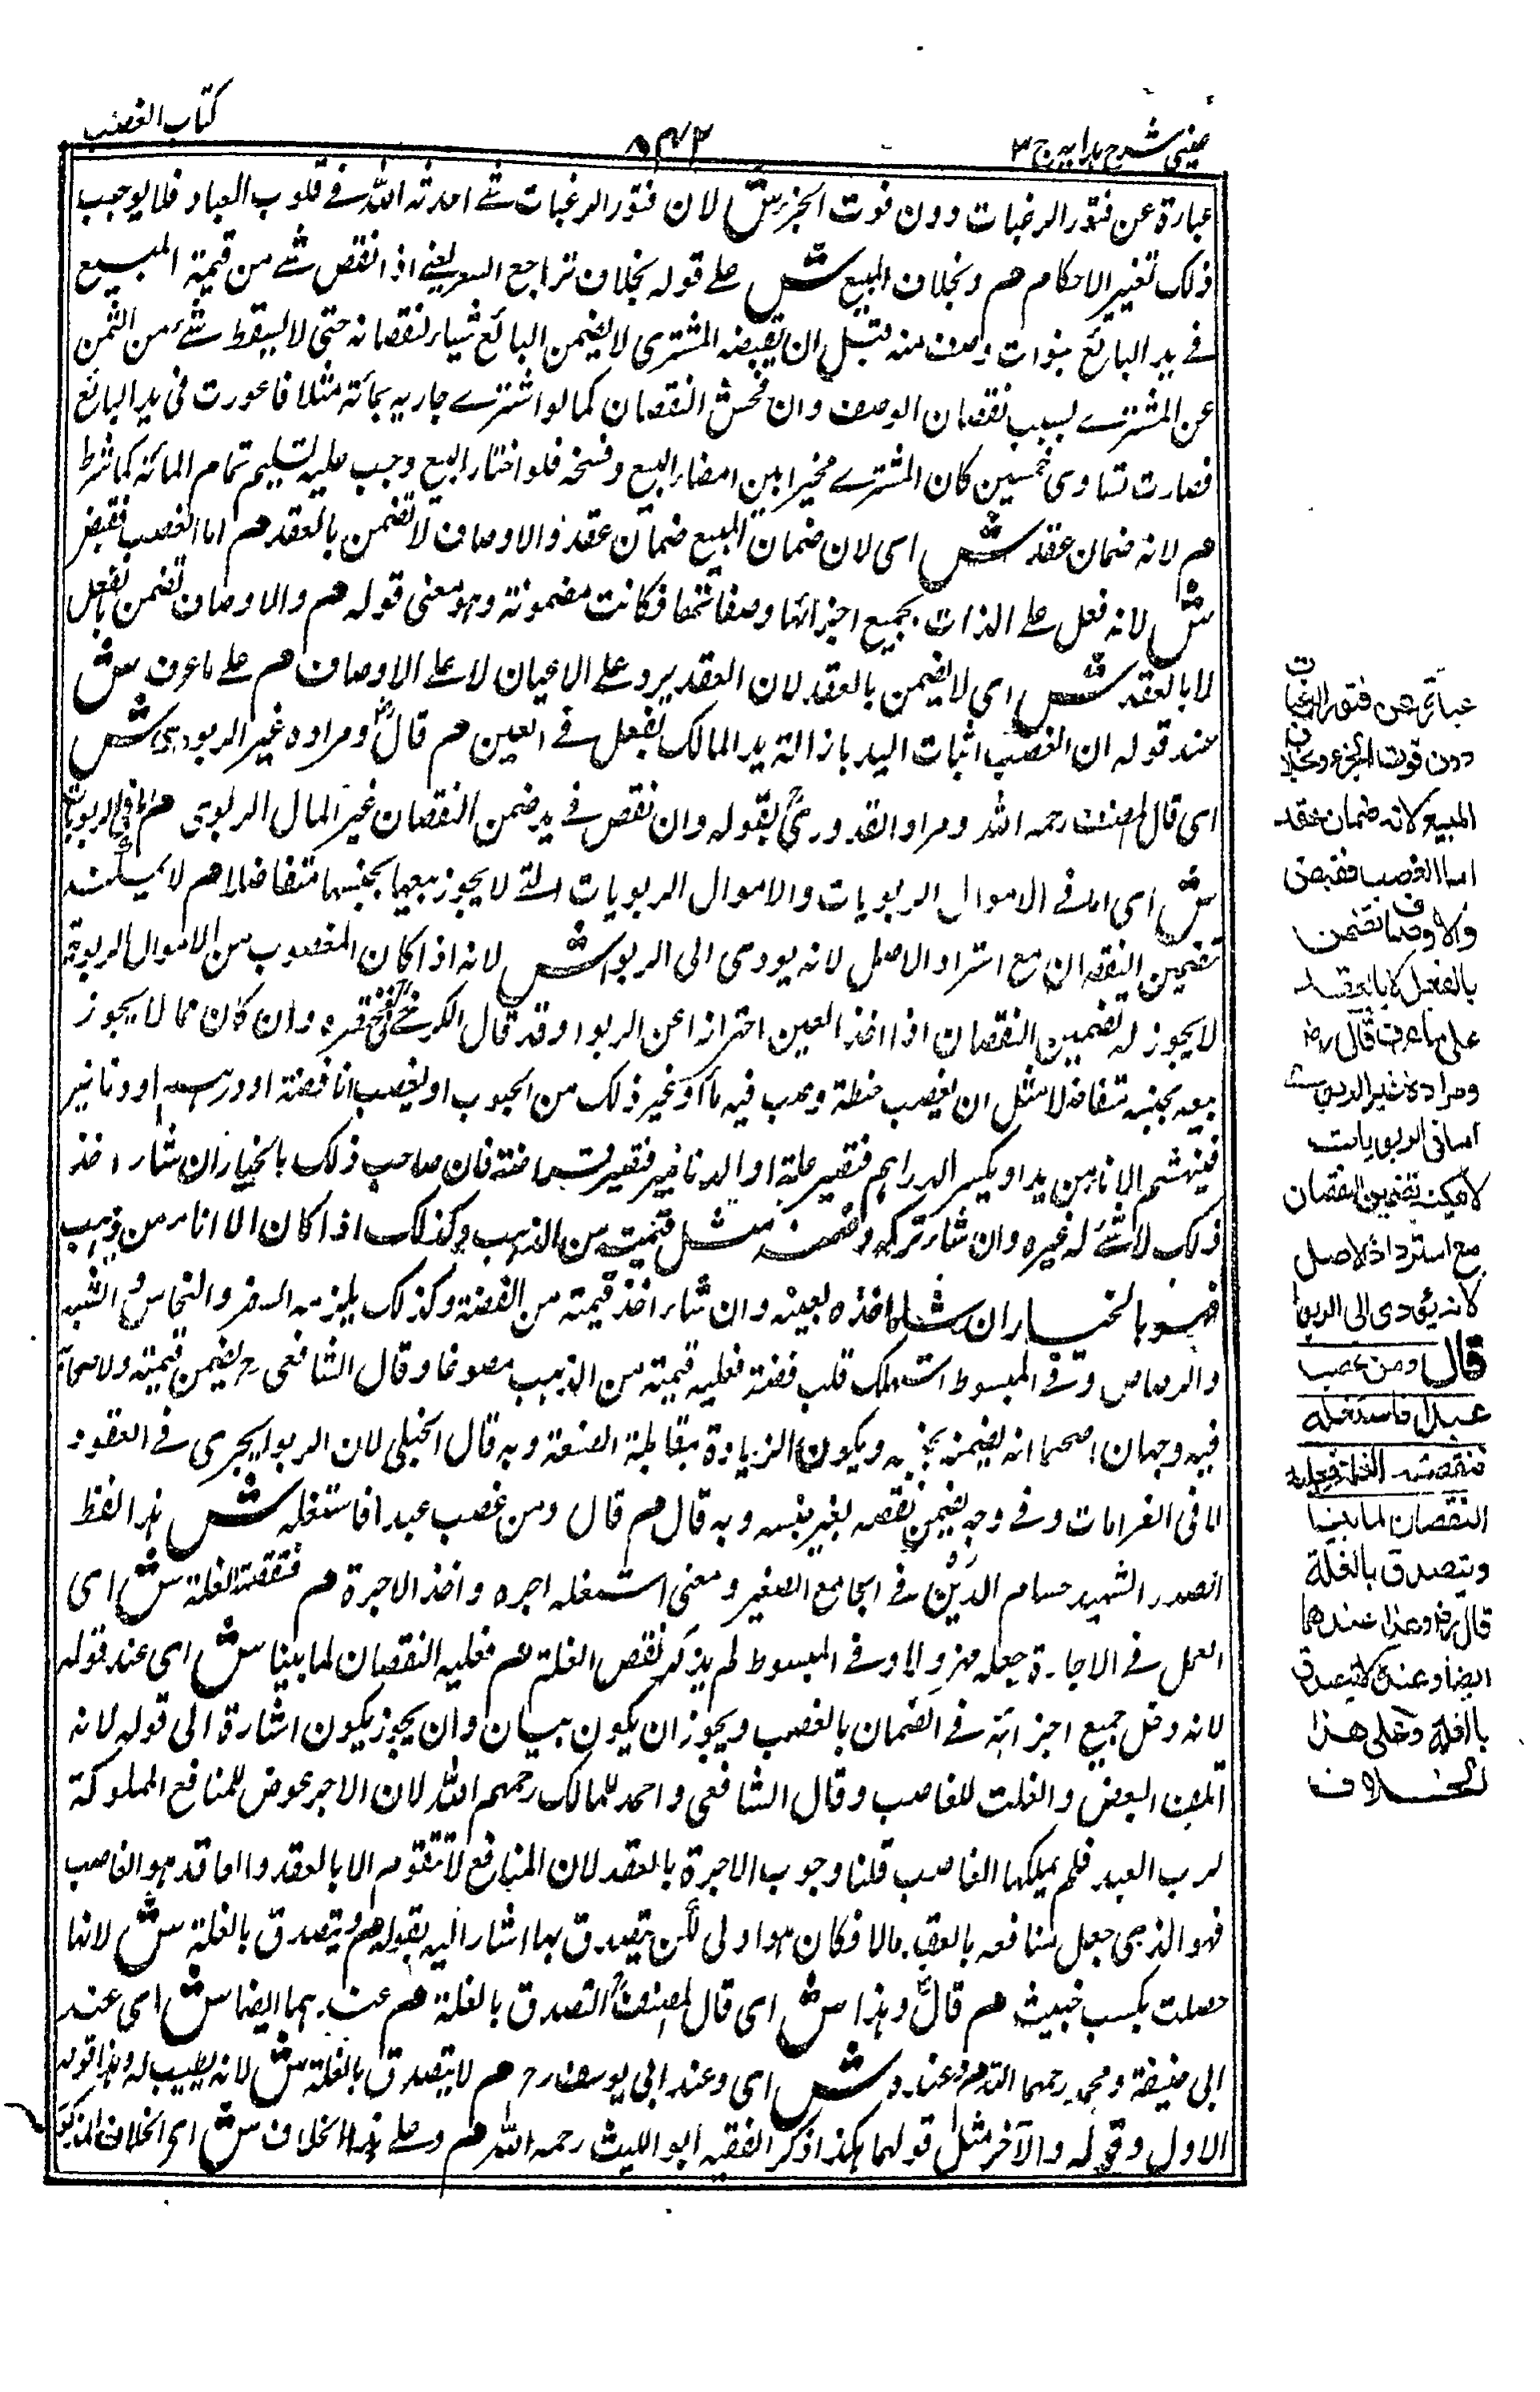 عيني شرح هدايه ج ٣
٨٣٢
كتاب الغصب
عبارة عن فتور الرغبات دون فوت الجزء ش لان فتور الرغبات شے احدثه الله فے قلوب العباد فلا يوجب
ذلك تغيير الاحكام هم وبخلاف المبيع ش علے قوله بخلاف تراجع السعر يعني اذا انقص شے من قيمة المبيع
فے يد البائع بفوات وصف منه قبل ان يقبضه المشتري لا يضمن البائع شيأ لنقصانه حتى لا يسقط شئ من الثمن
عن المشترے بسبب نقصان الوصف وان فحش النقصان كما لو اشترے جاريه بمائة مثلا فاعورت في يد البائع
فصارت تساوى خمسين كان المشترے مخيرا بين امضاء البيع وفسخه فلو اختار البيع وجب عليه تسليم تمام المائة كما شرط
هم لانه ضمان عقد ش اى لان ضمان المبيع ضمان عقد والاوصاف لا تضمن بالعقد هم اما الغصب فقبض
ش لانه فعل علے الذات بجميع اجزائها وصفاتها فكانت مضمونة وهو معنى قوله هم والاوصاف تضمن بالفعل
لا بالعقد ش اى لا يضمن بالعقد لان العقد يرد علے الاعيان لا علے الاوصاف هم علے ما عرف ش
عند قوله ان الغصب اثبات اليد بازالة يد المالك بفعل فے العين هم قال رض ومراده غير الربوى ش
اى قال المصنف رحمه الله ومراد القدورى بقوله وان نقص فے يده ضمن النقصان غير المال الربوى هم اما فى الربويات
ش اى اما فے الاموال الربويات والاموال الربويات التے لا يجوز بيعها بجنسها متفاضلا هم لا يمكنه
تضمين النقصان مع استرداد الاصل لانه يودى الى الربوا ش لانه اذا كان المغصوب من الاموال الربوية
لا يجوز له تضمين النقصان اذا اخذ العين احترازا عن الربوا وقد قال الكرخي في مختصره وان كان مما لا يجوز
بيعه بجنسه متفاضلا مثل ان يغصب حنطة وصب فيه ماء او غير ذلك من الحبوب او يغصب اناء فضة او دراهم او دنانير
فينهشم الاناء من يده او يكسر الدراهم فتصير غلة او الدنانير فتصير قراضة فان صاحب ذلك بالخيار ان شاء اخذ
ذلك لا شئ له غيره وان شاء تركه وضمنه مثل قيمته من الذهب وكذلك اذا كان الاناء من ذهب
فهو بالخيار ان شاء اخذه بعينه وان شاء اخذ قيمته من الفضة وكذلك يلزمه الصفر والنحاس والشبه
والرصاص وفے المبسوط استهلك قلب فضة فعليه قيمته من الذهب مصوغا وقال الشافعى رح يضمن قيمته ولاصحابه
فيه وجهان اصحهما انه يضمنه بجنسه ويكون الزيادة بمقابلة الصنعة وبه قال الحنبلى لان الربوا يجرى فے العقود
لا فى الغرامات وفے وجه يضمن نقصه بغير جنسه وبه قال هم قال ومن غصب عبدا فاستغله ش هذا لفظ
الصدر الشهيد حسام الدين فے الجامع الصغير ومعنى استغله اجره واخذ الاجرة هم فنقصته الغلة ش اى
العمل فے الاجارة جعله مهزولا وفے المبسوط لم يذكر نقص الغلة هم فعليه النقصان لما بينا ش اى عند قوله
لانه دخل جميع اجزائه فے الضمان بالغصب ويجوز ان يكون بيان وان يجوز يكون اشارة الى قوله لانه
اتلف البعض والغلت للغاصب وقال الشافعى واحمد للمالك رحمهم الله لان الاجر عوض للمنافع المملوكة
لرب العبد فلم يملكها الغاصب قلنا وجوب الاجرة بالعقد لان المنافع لا تتقوم الا بالعقد والعاقد هو الغاصب
فهو الذى جعل منافعه بالعقد مالا فكان هو اولى لكن يتصدق بها اشار اليه بقوله هم ويتصدق بالغلة ش لانها
حصلت بكسب خبيث هم قال وهذا ش اى قال المصنف التصدق بالغلة هم عندهما ايضا ش اى عند
ابى حنيفة ومحمد رحمهما الله هم وعنده ش اى وعند ابى يوسف رح هم لا يتصدق بالغلة ش لانه يطيب له وهذا قوله
الاول وقوله والآخر مثل قولهما هكذا ذكر الفقيه ابو الليث رحمه الله هم وعلے هذا الخلاف ش اى الخلاف المذكور
عبارة عن فتور الرغبات
دون فوت الجزء وبخلاف
المبيع لانه ضمان عقد
اما الغصب فقبض
والاوصاف تضمن
بالفعل لا بالعقد
على ما عرف قال رض
ومراده غير الربوى
اما فى الربويات
لا يمكنه تضمين النقصان
مع استرداد الاصل
لانه يؤدى الى الربوا
قال ومن غصب
عبدا فاستغله
فنقصته الغلة فعليه
النقصان لما بينا
ويتصدق بالغلة
قال رض وهذا عندهما
ايضا وعنده لا يتصدق
بالغلة وعلى هذا
الخلاف